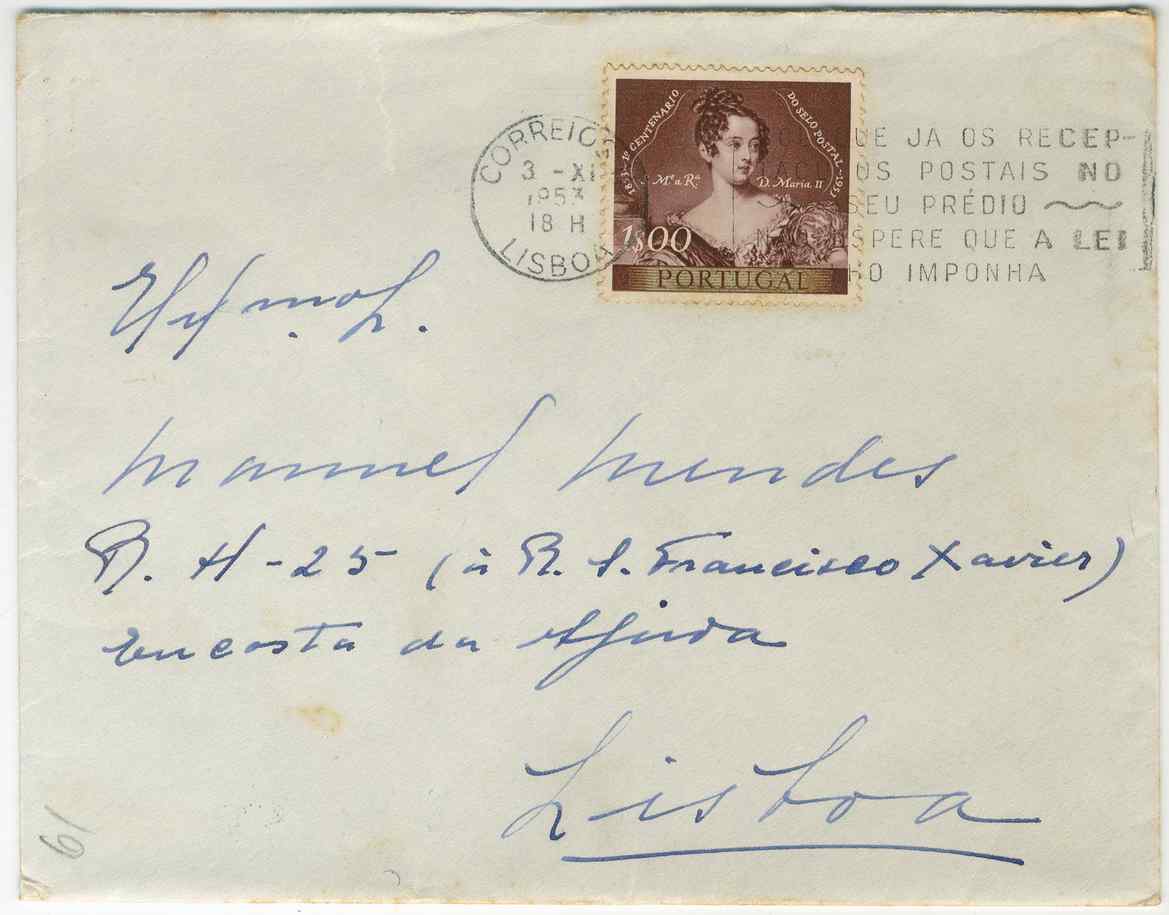 CORREIOS
3 - XI
1953
18 H
LISBOA
1853 - 1º CENTENARIO DO SELO POSTAL - 1953
Mª a Rª D. Maria II
1$00
PORTUGAL
UE JA OS RECEP-
OS POSTAIS NO
SEU PRÉDIO
NÃO ESPERE QUE A LEI
HO IMPONHA
Exmo. Sr.
Manuel Mendes
R. H-25 (à R. S. Francisco Xavier)
Encosta da Ajuda
Lisboa
61